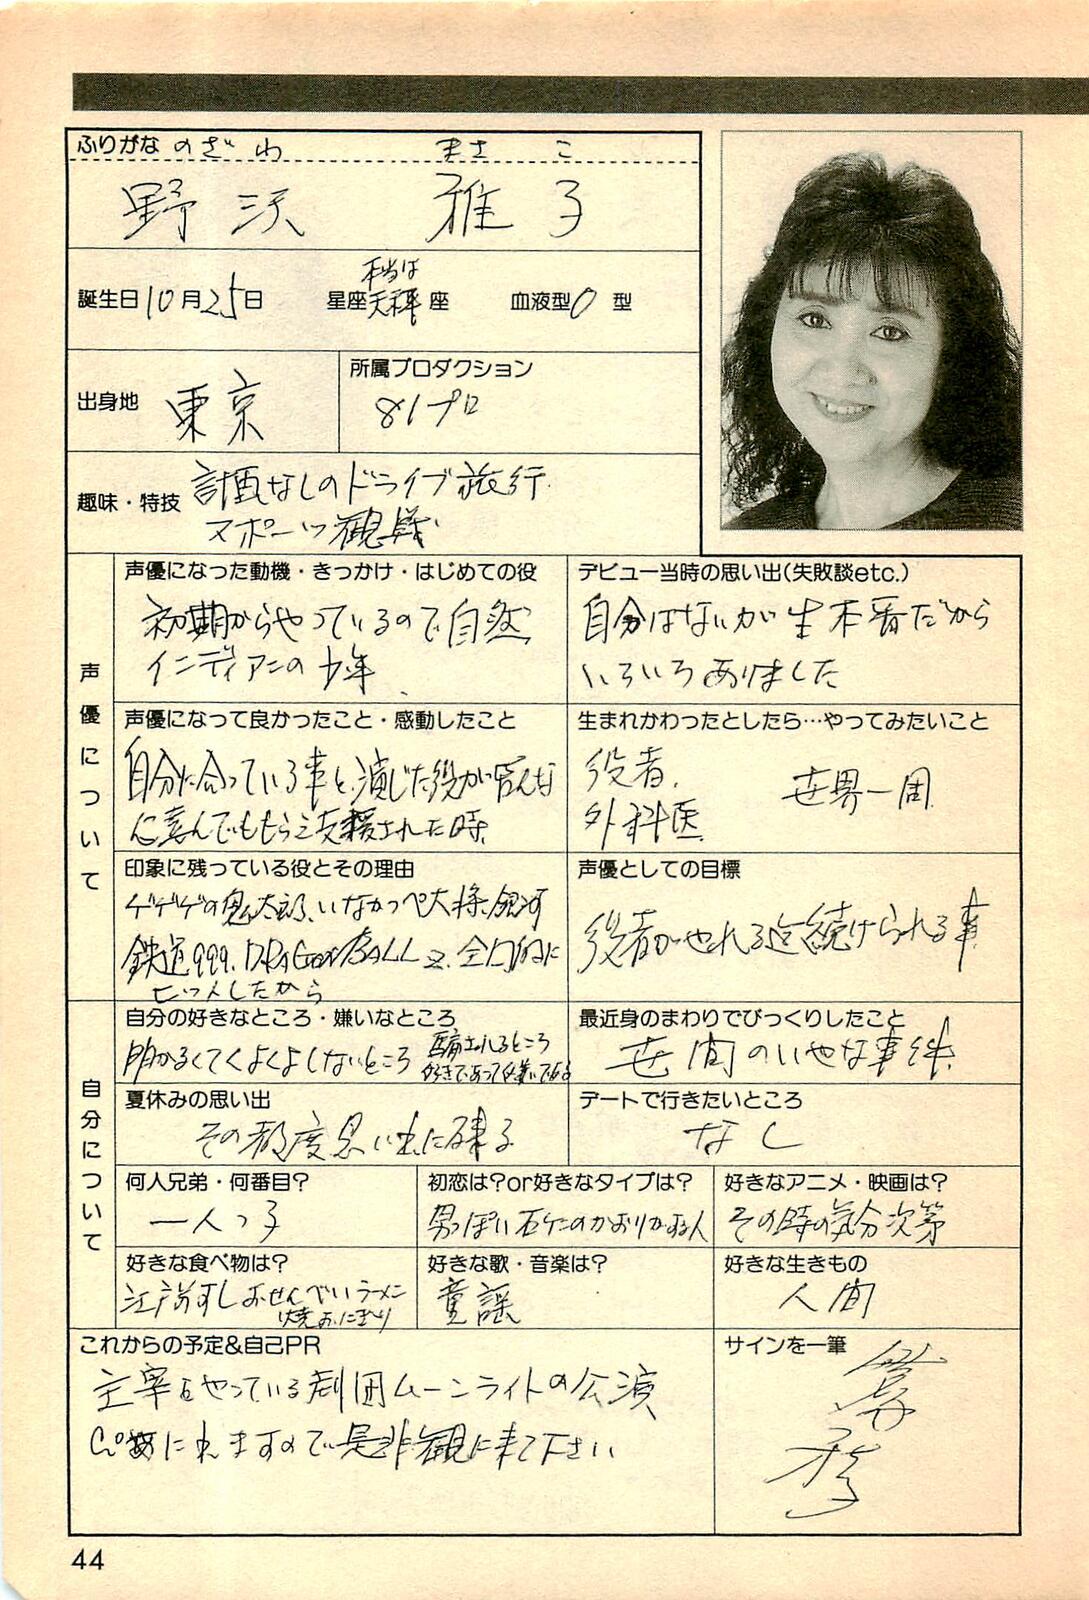 ふりがな のざわ まさこ
野沢 雅子
誕生日 10月25日 星座 本当は 天秤 座 血液型 O 型
出身地 東京
所属プロダクション
81プロ
趣味・特技 計画なしのドライブ旅行
スポーツ観戦
声優について
声優になった動機・きっかけ・はじめての役
初期からやっているので自然
インディアンの少年
デビュー当時の思い出(失敗談etc.)
自分はないが生本番だから
いろいろありました
声優になって良かったこと・感動したこと
自分に合っている事と、演じた役が皆んな
に喜んでもらえ支援された時
生まれかわったとしたら…やってみたいこと
役者 世界一周
外科医
印象に残っている役とその理由
ゲゲゲの鬼太郎、いなかっぺ大将、銀河
鉄道999、DRAGON BALL Z、全力的に
ヒットしたから
声優としての目標
役者がやれる迄続けられる事
自分について
自分の好きなところ・嫌いなところ
明かるくてくよくよしないところ
されるところ
好きであって嫌いである
最近身のまわりでびっくりしたこと
世間のいやな事件
夏休みの思い出
その都度思い出に残る
デートで行きたいところ
なし
何人兄弟・何番目?
一人っ子
初恋は?or好きなタイプは?
男っぽい石ケンのかおりがする人
好きなアニメ・映画は?
その時の気分次第
好きな食べ物は?
江戸前すし おせんべい ラーメン
焼おにぎり
好きな歌・音楽は?
童謡
好きな生きもの
人間
これからの予定&自己PR
主宰をやっている劇団ムーンライトの公演
に来て下さい
サインを一筆
44